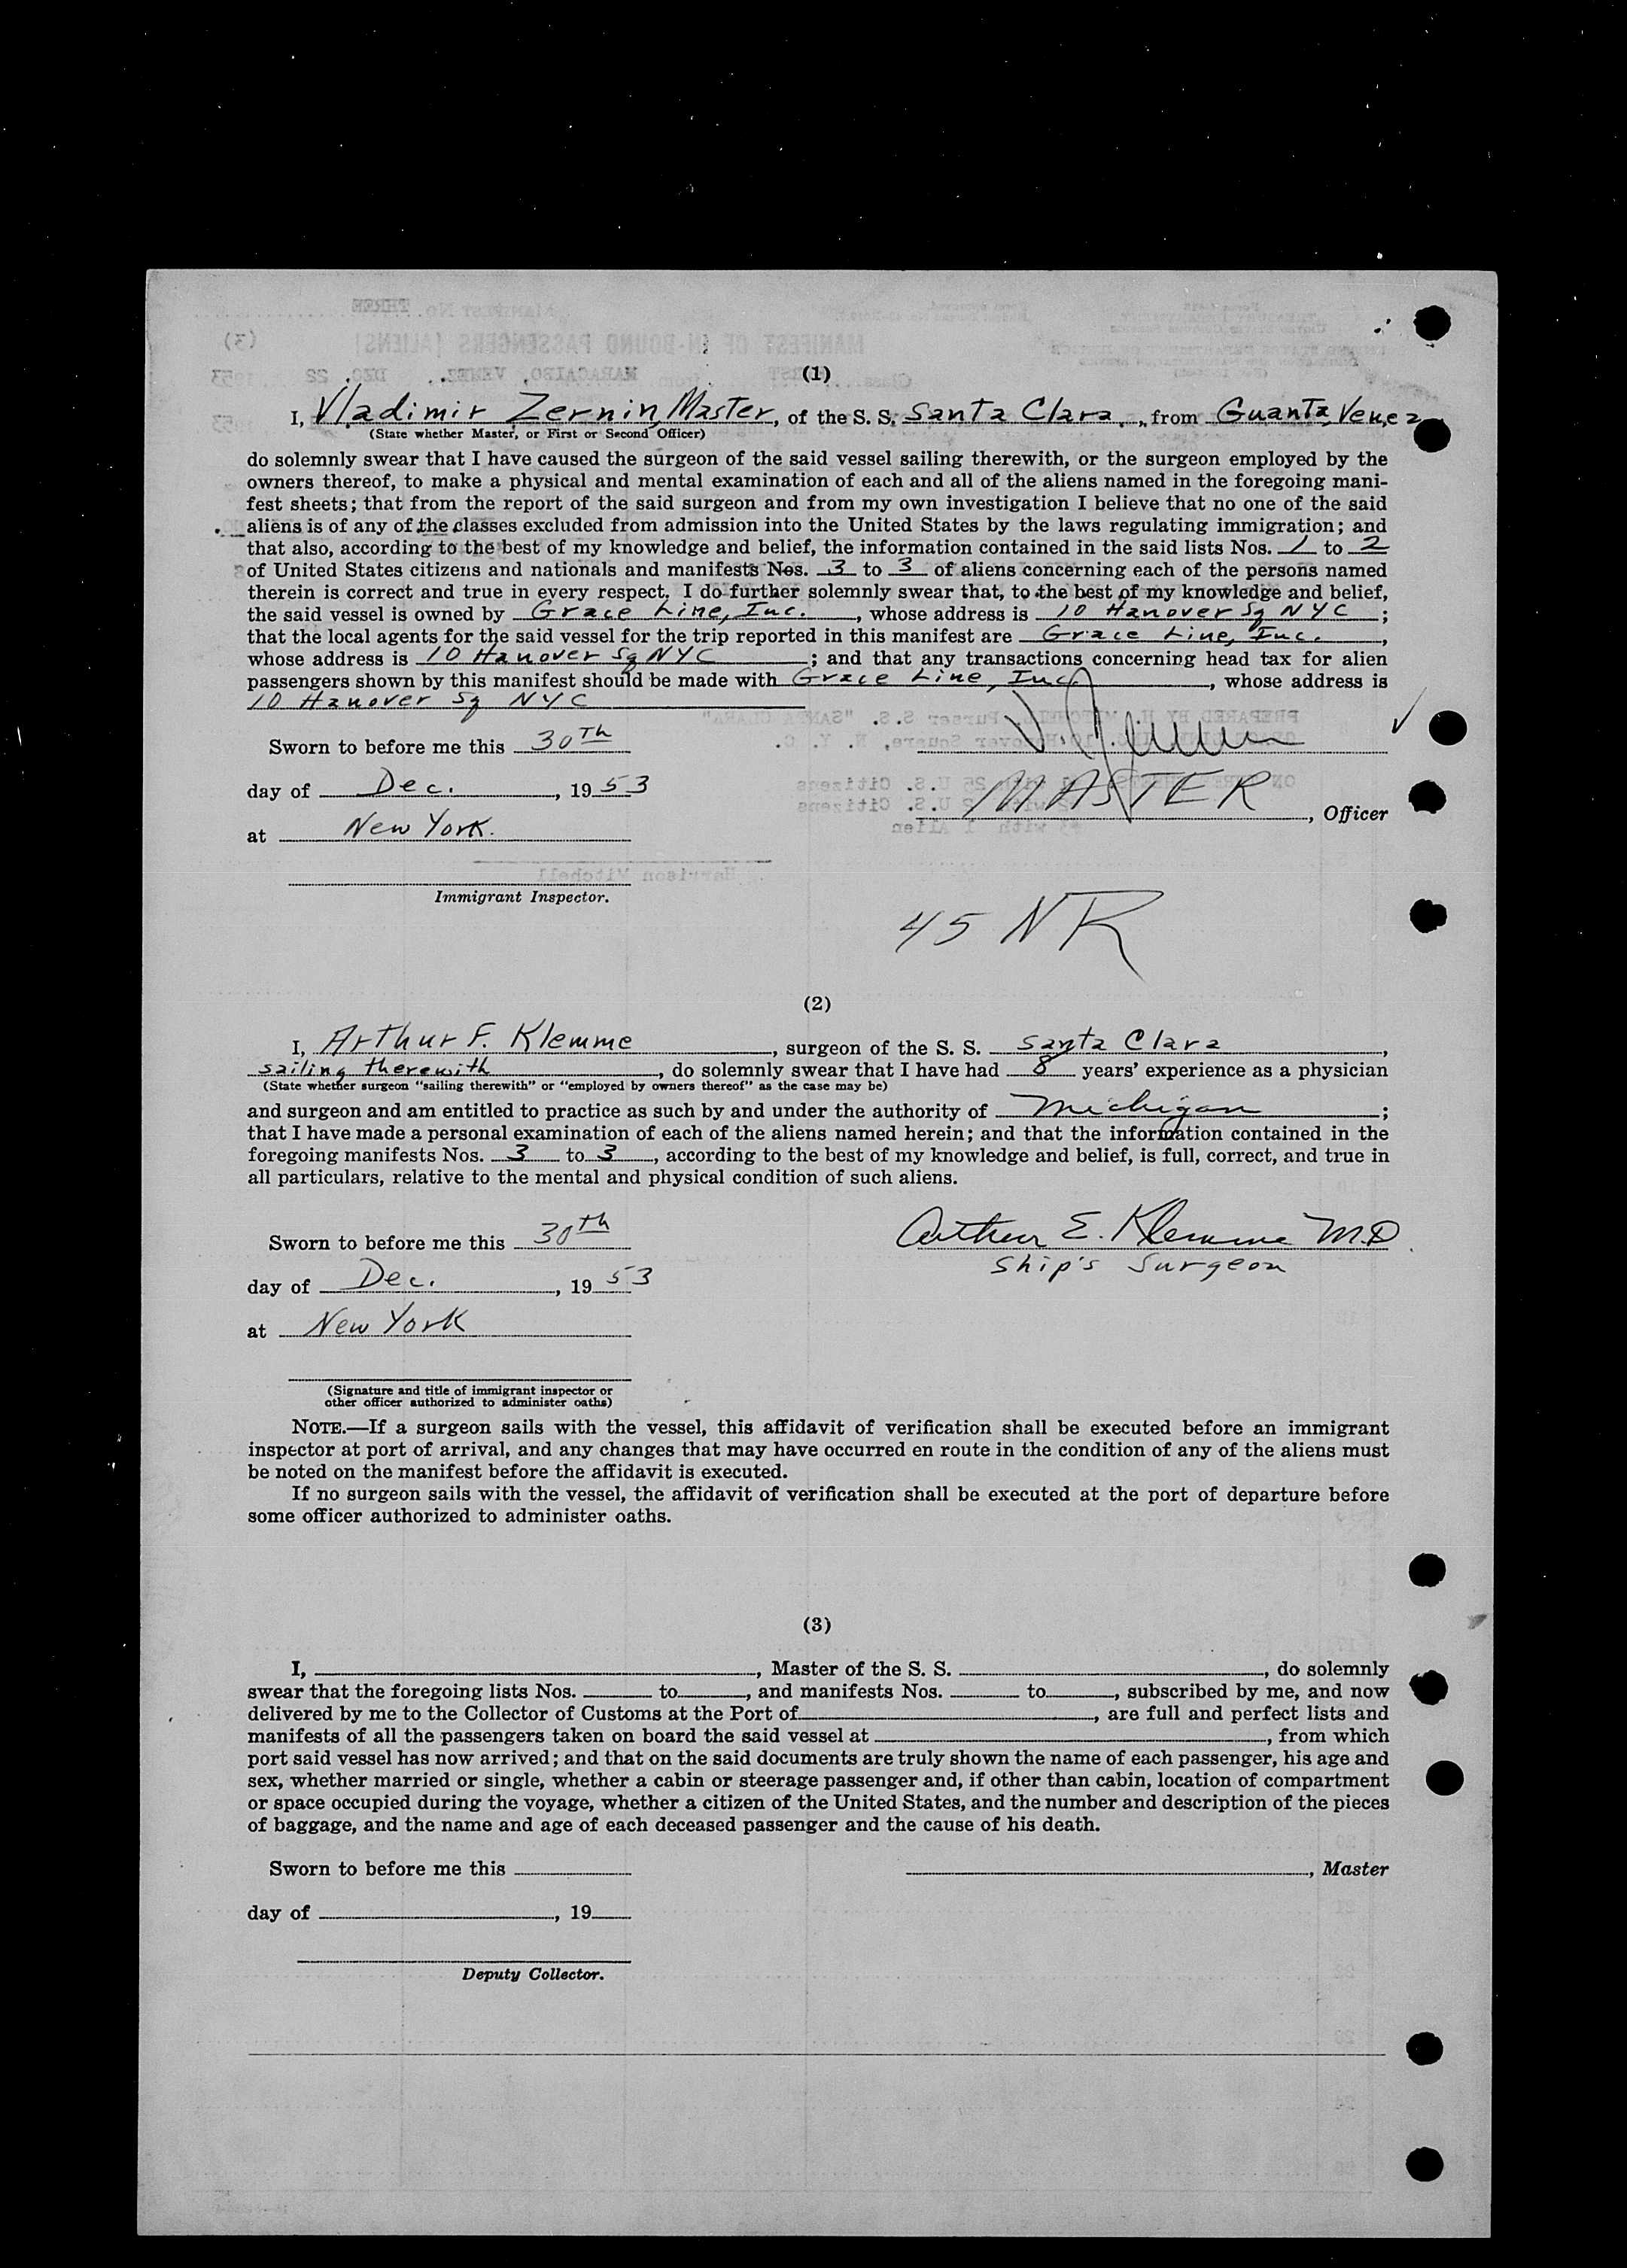 (1)
I, Vladimir Zernin, Master, of the S. S. Santa Clara, from Guanta, Venez
(State whether Master, or First or Second Officer)
do solemnly swear that I have caused the surgeon of the said vessel sailing therewith, or the surgeon employed by the
owners thereof, to make a physical and mental examination of each and all of the aliens named in the foregoing mani-
fest sheets; that from the report of the said surgeon and from my own investigation I believe that no one of the said
aliens is of any of the classes excluded from admission into the United States by the laws regulating immigration; and
that also, according to the best of my knowledge and belief, the information contained in the said lists Nos. 1 to 2
of United States citizens and nationals and manifests Nos. 3 to 3 of aliens concerning each of the persons named
therein is correct and true in every respect. I do further solemnly swear that, to the best of my knowledge and belief,
the said vessel is owned by Grace Line, Inc., whose address is 10 Hanover Sq NYC;
that the local agents for the said vessel for the trip reported in this manifest are Grace Line, Inc.,
whose address is 10 Hanover Sq NYC; and that any transactions concerning head tax for alien
passengers shown by this manifest should be made with Grace Line, Inc., whose address is
10 Hanover Sq NYC
Sworn to before me this 30Th
day of Dec., 1953
MASTER, Officer
at New York.
Immigrant Inspector.
45 NR
(2)
I, Arthur F. Klemme, surgeon of the S. S. Santa Clara,
sailing therewith, do solemnly swear that I have had 8 years' experience as a physician
(State whether surgeon "sailing therewith" or "employed by owners thereof" as the case may be)
and surgeon and am entitled to practice as such by and under the authority of Michigan;
that I have made a personal examination of each of the aliens named herein; and that the information contained in the
foregoing manifests Nos. 3 to 3, according to the best of my knowledge and belief, is full, correct, and true in
all particulars, relative to the mental and physical condition of such aliens.
Arthur E. Klemme M.D.
Sworn to before me this 30th
Ship's Surgeon
day of Dec., 1953
at New York
(Signature and title of immigrant inspector or
other officer authorized to administer oaths)
NOTE.—If a surgeon sails with the vessel, this affidavit of verification shall be executed before an immigrant
inspector at port of arrival, and any changes that may have occurred en route in the condition of any of the aliens must
be noted on the manifest before the affidavit is executed.
If no surgeon sails with the vessel, the affidavit of verification shall be executed at the port of departure before
some officer authorized to administer oaths.
(3)
I, , Master of the S. S. , do solemnly
swear that the foregoing lists Nos. to , and manifests Nos. to , subscribed by me, and now
delivered by me to the Collector of Customs at the Port of , are full and perfect lists and
manifests of all the passengers taken on board the said vessel at , from which
port said vessel has now arrived; and that on the said documents are truly shown the name of each passenger, his age and
sex, whether married or single, whether a cabin or steerage passenger and, if other than cabin, location of compartment
or space occupied during the voyage, whether a citizen of the United States, and the number and description of the pieces
of baggage, and the name and age of each deceased passenger and the cause of his death.
Sworn to before me this , Master
day of , 19
Deputy Collector.